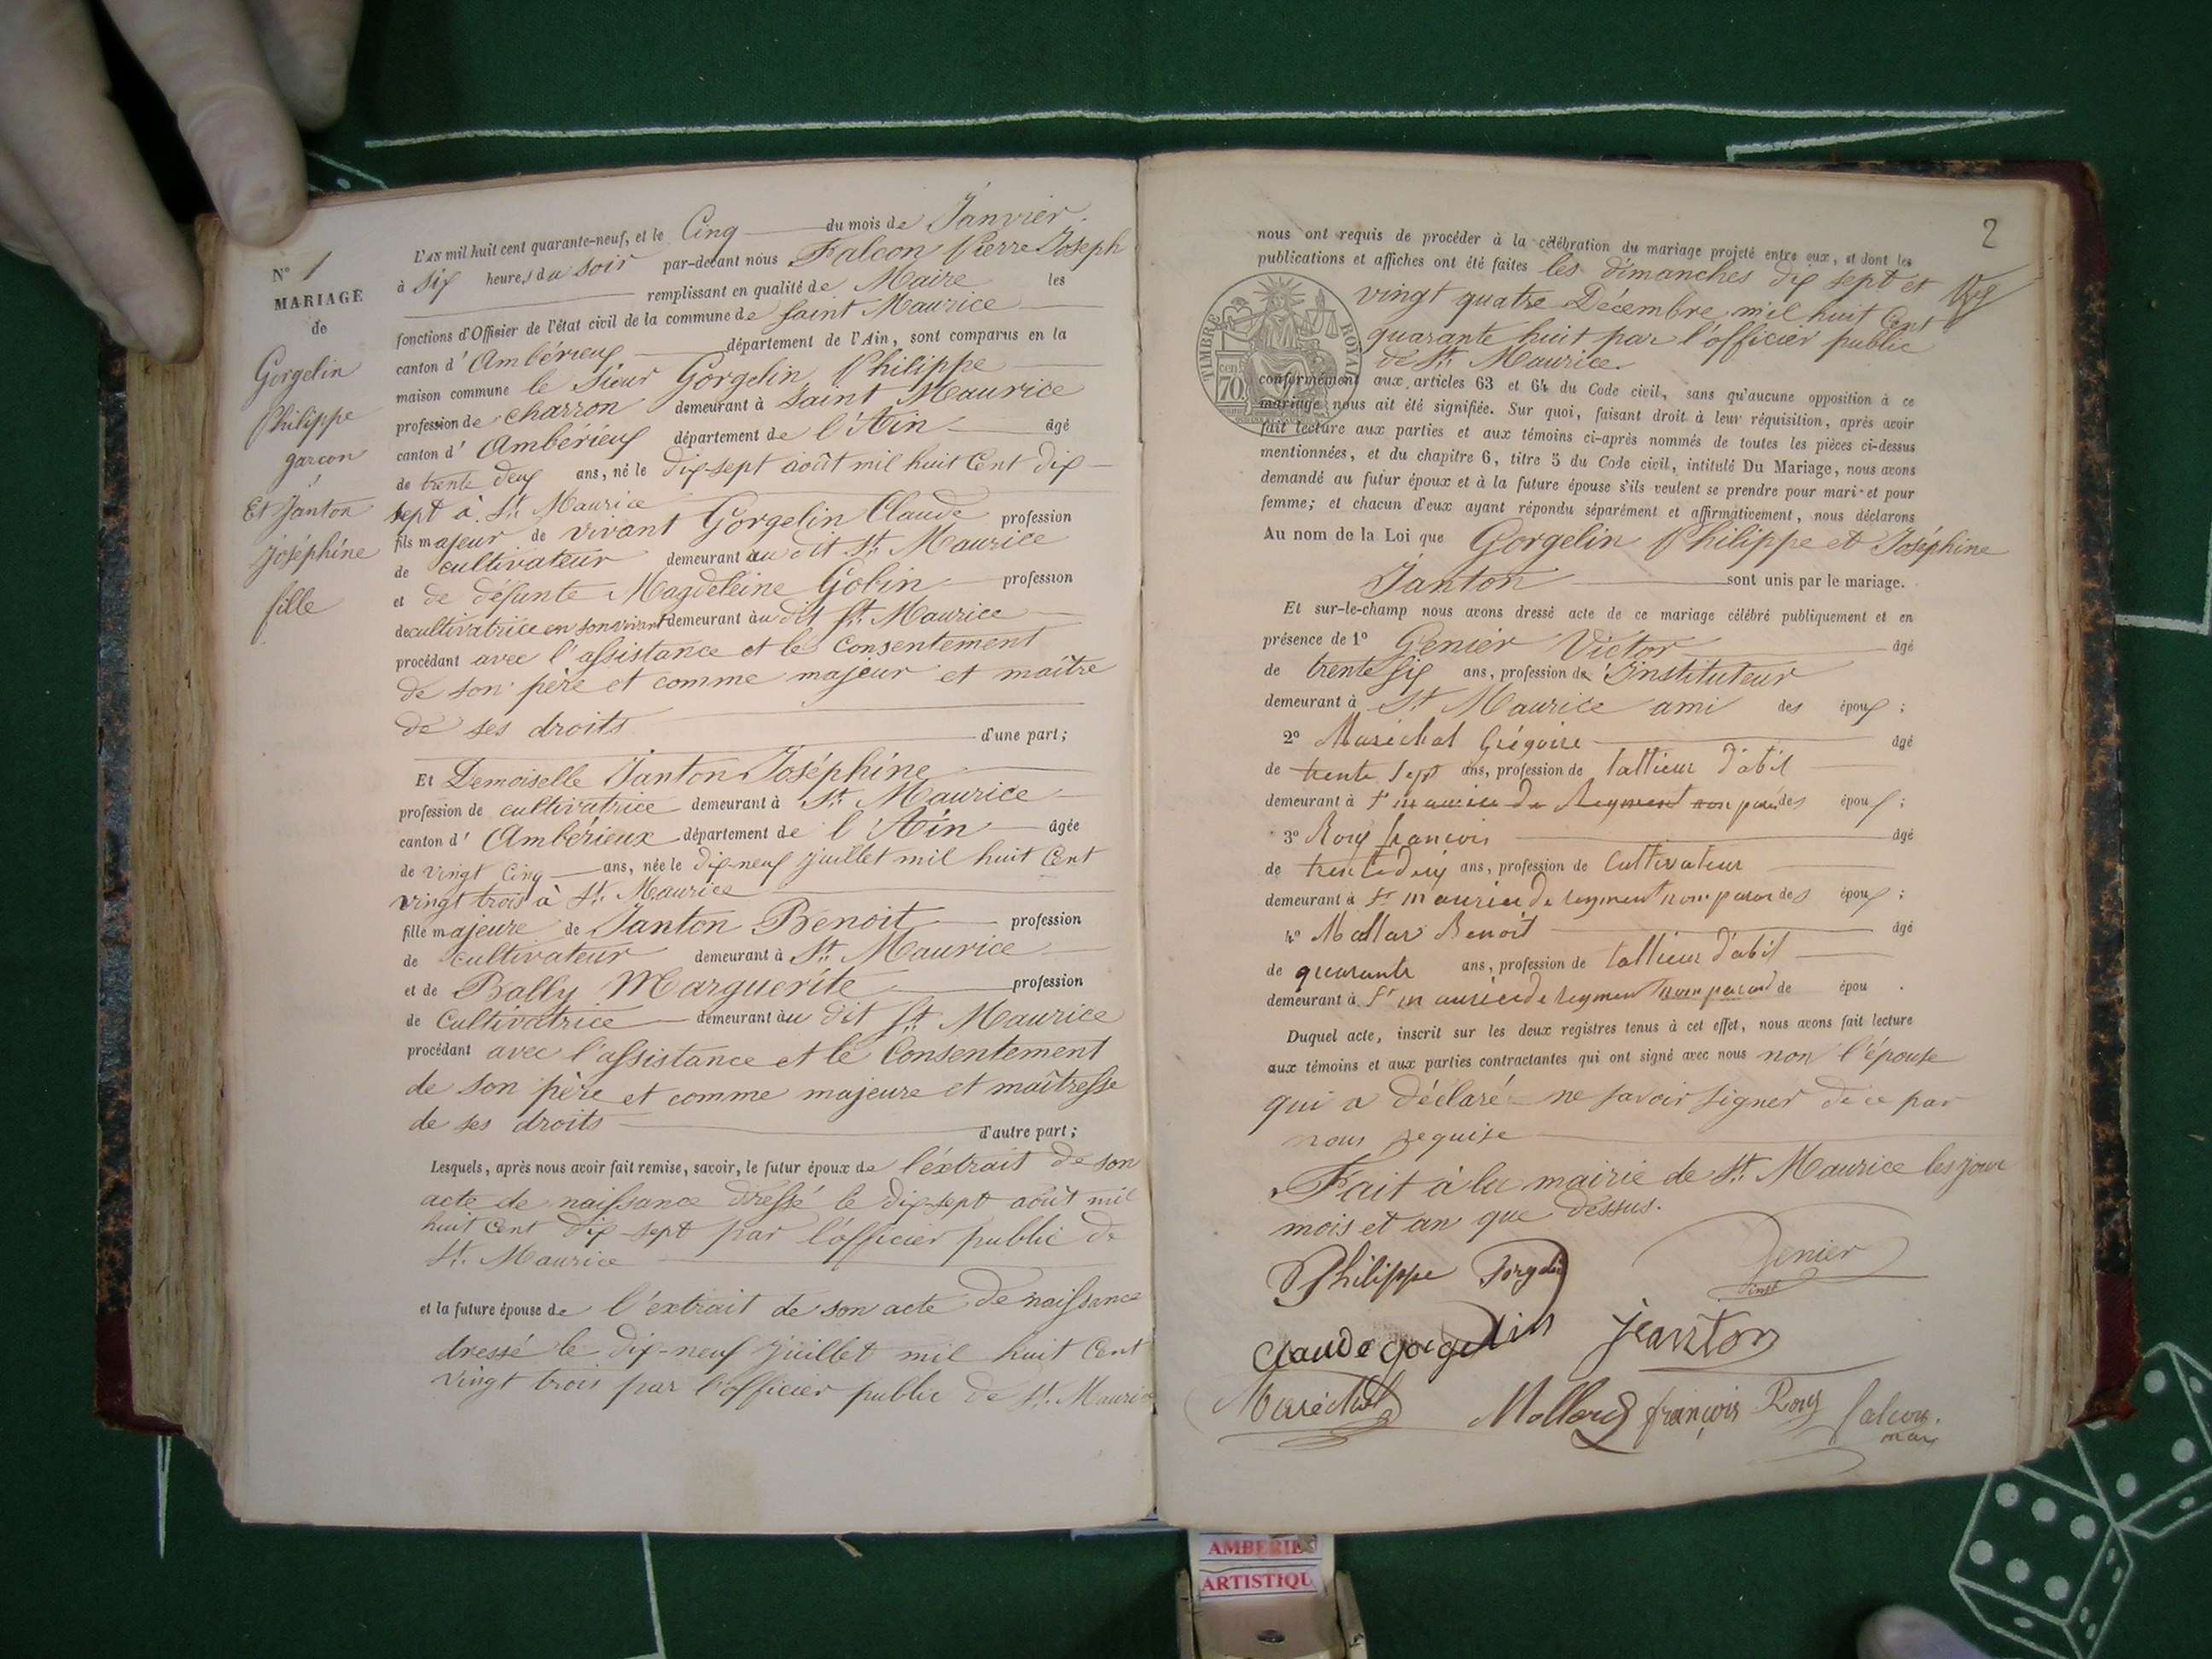 N° 1
MARIAGE
de
Gorgelin
Philippe
garçon
Et Janton
Joséphine
fille
L'AN mil huit cent quarante-neuf, et le Cinq du mois de Janvier
à six heures du soir par-devant nous Falcon Pierre Joseph
remplissant en qualité de Maire les
fonctions d'Officier de l'état civil de la commune de saint Maurice
canton d'Ambérieux département de l'Ain, sont comparus en la
maison commune le sieur Gorgelin Philippe
profession de charron demeurant à Saint Maurice
canton d'Ambérieux département de l'Ain âgé
de trente deux ans, né le dix-sept août mil huit Cent dix
sept à St. Maurice
fils majeur de vivant Gorgelin Claude profession
de cultivateur demeurant au dit St. Maurice
et de défunte Magdeleine Gobin profession
de cultivatrice en son vivant demeurant au dit St. Maurice
procédant avec l'assistance et le Consentement
de son père et comme majeur et maître
de ses droits
d'une part ;
Et Demoiselle Janton Joséphine
profession de cultivatrice demeurant à St. Maurice
canton d'Ambérieux département de l'Ain âgée
de vingt Cinq ans, née le dix-neuf juillet mil huit Cent
vingt trois à St. Maurice
fille majeure de Janton Benoit profession
de cultivateur demeurant à St. Maurice
et de Bally Marguerite profession
de Cultivatrice demeurant au dit St. Maurice
procédant avec l'assistance et le Consentement
de son père et comme majeure et maîtresse
de ses droits
d'autre part ;
Lesquels, après nous avoir fait remise, savoir, le futur époux de l'extrait de son
acte de naissance dressé le dix-sept août mil
huit Cent dix sept par l'officier public de
St. Maurice
et la future épouse de l'extrait de son acte de naissance
dressé le dix-neuf juillet mil huit Cent
vingt trois par l'officier public de St. Maurice
2
nous ont requis de procéder à la célébration du mariage projeté entre eux, et dont les
publications et affiches ont été faites les dimanches dix sept et
vingt quatre Décembre mil huit Cent
quarante huit par l'officier public
de St. Maurice.
TIMBRE ROYAL
70 cent
conformément aux articles 63 et 64 du Code civil, sans qu'aucune opposition à ce
mariage nous ait été signifiée. Sur quoi, faisant droit à leur réquisition, après avoir
fait lecture aux parties et aux témoins ci-après nommés de toutes les pièces ci-dessus
mentionnées, et du chapitre 6, titre 5 du Code civil, intitulé Du Mariage, nous avons
demandé au futur époux et à la future épouse s'ils veulent se prendre pour mari et pour
femme ; et chacun d'eux ayant répondu séparément et affirmativement, nous déclarons
Au nom de la Loi que Gorgelin Philippe et Joséphine
Janton sont unis par le mariage.
Et sur-le-champ nous avons dressé acte de ce mariage célébré publiquement et en
présence de 1° Genier Victor âgé
de trente six ans, profession de Instituteur
demeurant à St. Maurice ami des époux ;
2° Maréchal Grégoire âgé
de trente sept ans, profession de tallieur d'abit
demeurant à St maurice de Reyment non paran des époux ;
3° Roux françois âgé
de trente deux ans, profession de Cultivateur
demeurant à St maurice de reyment non paran des époux ;
4° Mallard Benoit âgé
de quarante ans, profession de tallieur d'abit
demeurant à St maurice de reyment non paran de épou .
Duquel acte, inscrit sur les deux registres tenus à cet effet, nous avons fait lecture
aux témoins et aux parties contractantes qui ont signé avec nous non l'épouse
qui a déclaré ne savoir signer de ce par
nous requise
Fait à la mairie de St. Maurice les jour
mois et an que dessus.
Philippe Gorgelin
Genier
inst
Claude gorgelin
jeanton
Maréchal
Mollard
françois Roux
falcon.
maire
AMBERIE
ARTISTIQU